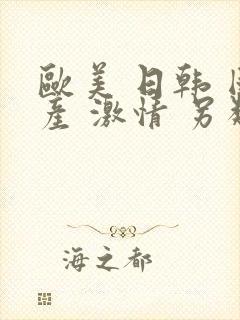 歐美 日韩
產 激情 另
海之都